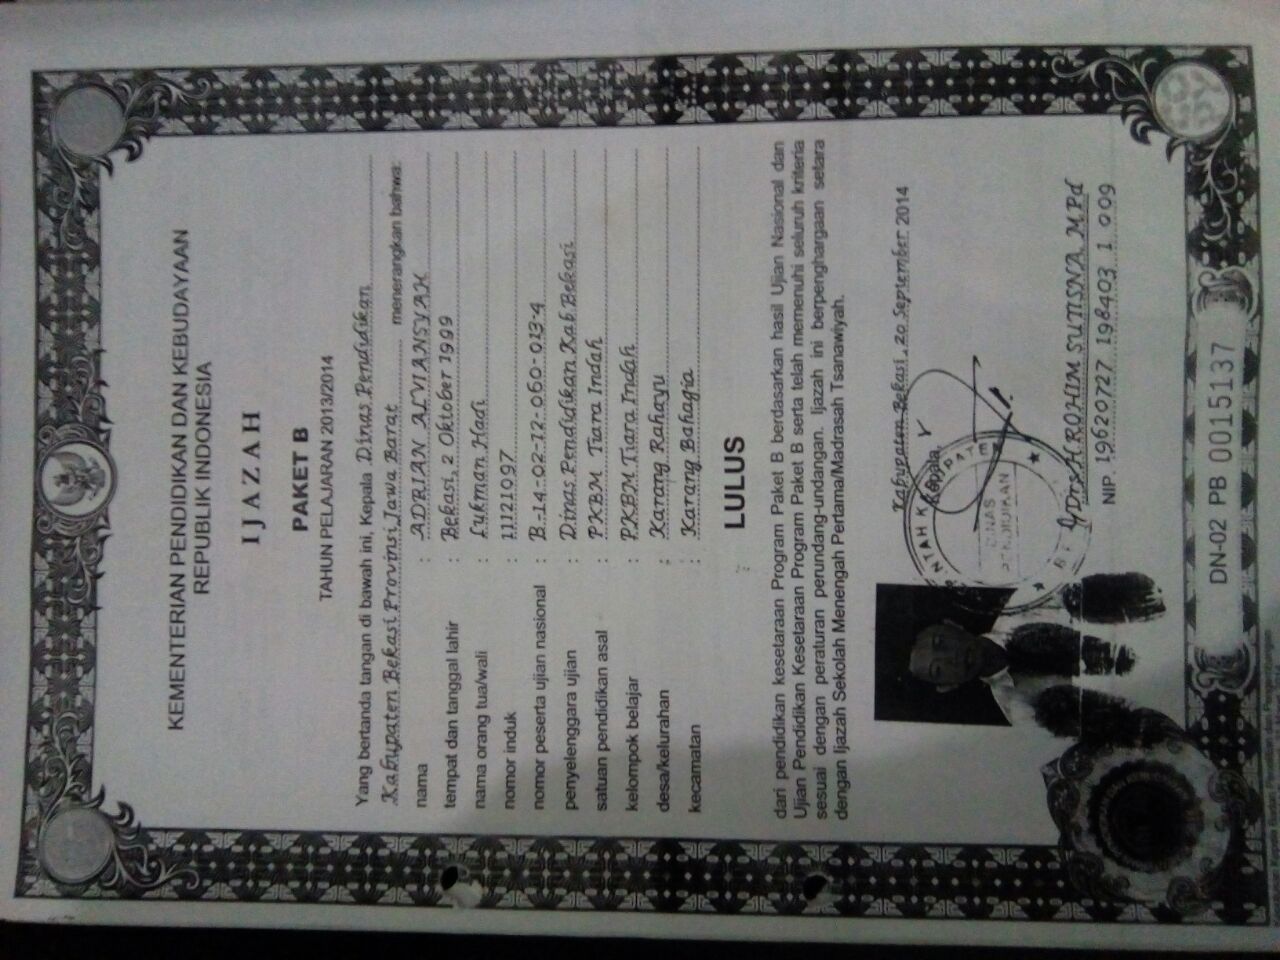 KEMENTERIAN PENDIDIKAN DAN KEBUDAYAAN
REPUBLIK INDONESIA
IJAZAH
PAKET B
TAHUN PELAJARAN 2013/2014
Yang bertanda tangan di bawah ini, Kepala Dinas Pendidikan
Kabupaten Bekasi Provinsi Jawa Barat menerangkan bahwa:
nama : ADRIAN ALVIANSYAH
tempat dan tanggal lahir : Bekasi, 2 Oktober 1999
nama orang tua/wali : Lukman Hadi
nomor induk : 11121097
nomor peserta ujian nasional : B-14-02-12-060-013-4
penyelenggara ujian : Dinas Pendidikan Kab Bekasi
satuan pendidikan asal : PKBM Tiara Indah
kelompok belajar : PKBM Tiara Indah
desa/kelurahan : Karang Rahayu
kecamatan : Karang Bahagia
LULUS
dari pendidikan kesetaraan Program Paket B berdasarkan hasil Ujian Nasional dan
Ujian Pendidikan Kesetaraan Program Paket B serta telah memenuhi seluruh kriteria
sesuai dengan peraturan perundang-undangan. Ijazah ini berpenghargaan setara
dengan Ijazah Sekolah Menengah Pertama/Madrasah Tsanawiyah.
Kabupaten Bekasi, 20 September 2014
Kepala,
DINAS
PENDIDIKAN
NIP. 19620727 198403 1 009
DN-02 PB 0015137